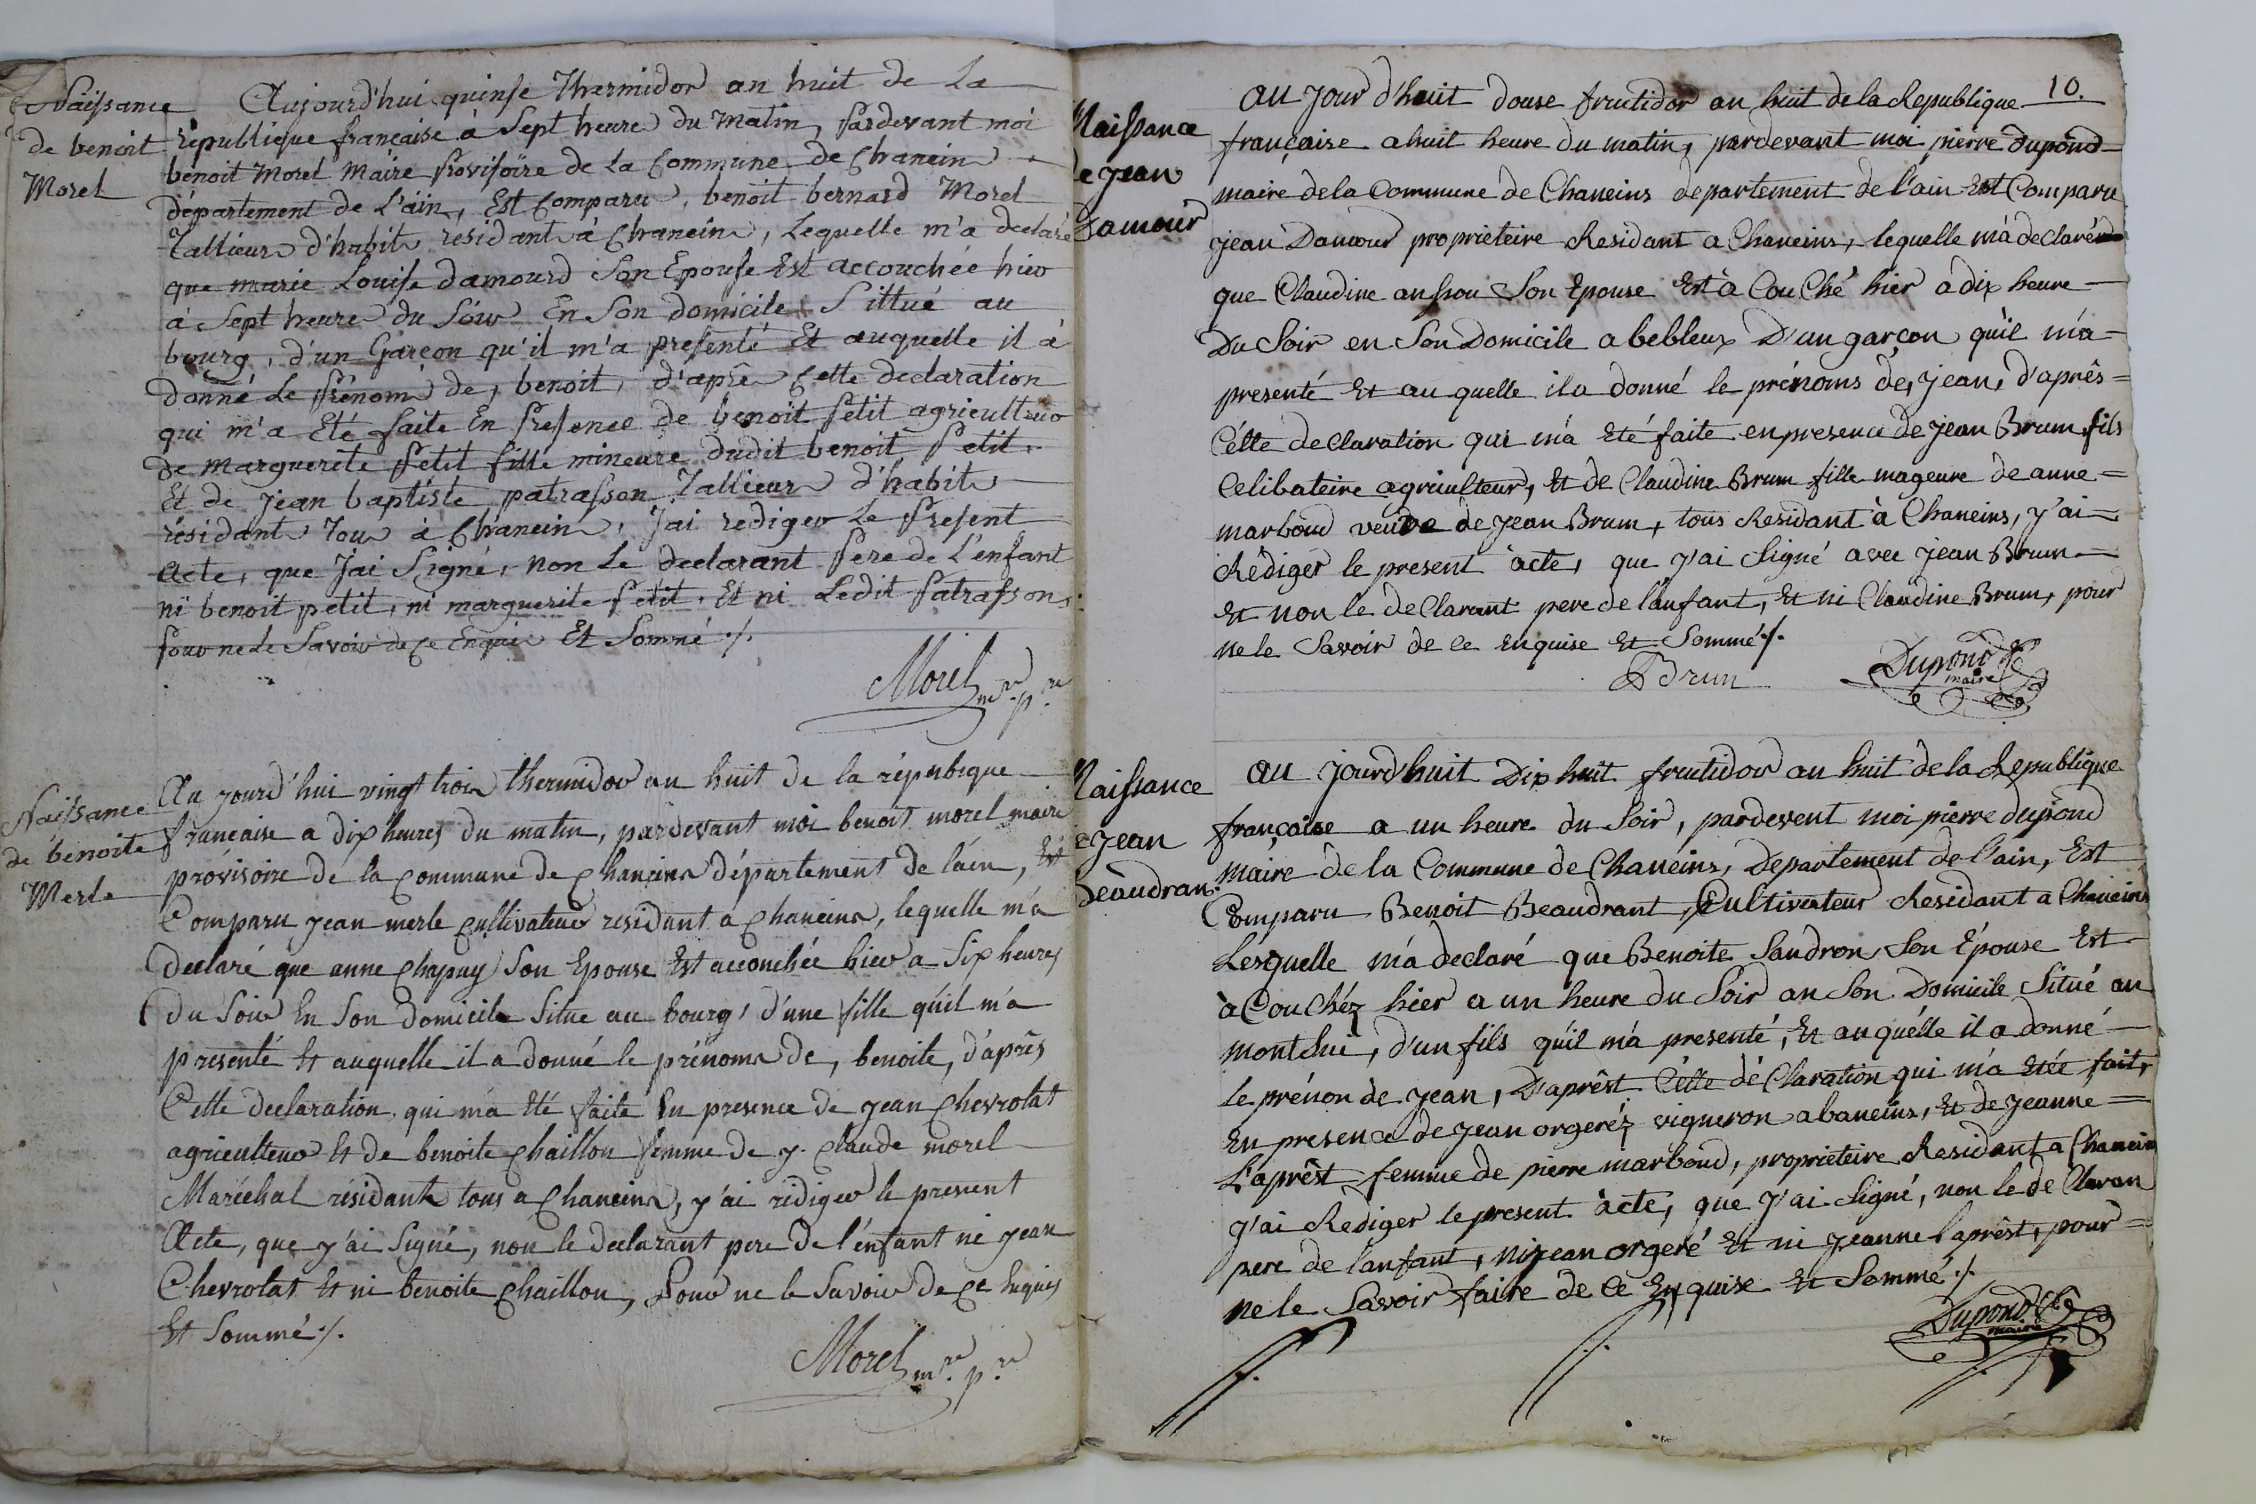 Naissance
de benoit
Morel
Aujourd'hui quinse Thermidor an huit de La
republique française à Sept heure du Matin, pardevant moi
benoit Morel Maire provisoire de La Commune de Chanein
département de L'ain, Est Comparu, benoit bernard Morel
Tallieur d'habit residant à Chanein, Lequelle m'a declaré
que marie Louise damourd Son Epouse Est accouchée hier
à Sept heure du Soir En Son domicile Sittué au
bourg, d'un Garçon qu'il m'a presenté Et auquelle il à
donné Le prénom de, benoit, d'après Cette declaration
qui m'a Eté faite En presence de benoit petit agriculteur
de marguerite petit fille mineure dudit benoit petit
Et de jean baptiste patrasson Tallieur d'habit
résidant Tous à Chanein, J'ai rediger Le present
acte, que J'ai Signé, non Le declarant pere de L'enfant
ni benoit petit, ni marguerite petit, Et ni Ledit patrassons
pour ne Le Savoir de Ce Enquis Et Sommé ./.
Morel mre. pre.
Naissance
de benoite
Merle
Au jourd'hui vingt trois thermidor an huit de la répubique
francaise a dix heures du matin, pardevant moi benoit morel maire
provisoire de la commune de chaneins département de láin, Est
Comparu jean merle cultivateur residant a chaneins, lequelle m'a
declaré que anne chapuy Son Epouse Est accouchée hier a Six heures
du Soir En Son domicile Situe au bourg, d'une fille qu'il m'a
presenté Et auquelle il a donné le prénoms de, benoite, d'après
Cette declaration qui m'a Eté faite En presence de jean chevrolat
agriculteur Et de benoite chaillon femme de j. claude morel
Maréchal résidants tous a chaneins, j'ai rediger le present
Acte, que j'ai Signé, non le declarant pere de l'énfant ni jean
Chevrolat Et ni benoite chaillon, pour ne le Savoir de ce Enquis
Et Sommé ./.
Morel mre. pre.
10.
Naissance
de jean
Damour
au jour d'huit douse frutidor an huit de la Republique
française a huit heure du matin, pardevant moi pierre dupond
maire de la Commune de Chaneins departement de l'ain Est Comparu
jean Damour proprieteire Residant a Chaneins, lequelle m'à deClaré
que Claudine anssou Son Epouse Est à CouChé hier a dix heure
Du Soir en Son Domicile a bebleux D'un garçon qu'il m'a
presenté Et au quelle il a donné le prénoms de, jean, d'après
Cétte deClaration qui m'à Eté faite en presence de jean Brum fils
Celibateire agriculteur, Et de Claudine Brum fille mageure de anne
marboud veuve de jean Brum, tous Residant à Chaneins, j'ai
Rédiger le present àcte, que j'ai Signé avec jean Brum
Et non le deClarant pere de l'anfant, Et ni Claudine Brum, pour
ne le Savoir de ce Enquise Et Sommé ./.
Brun
Dupond
maire
Naissance
de jean
Beaudran.
au jourdhuit Dix huit frutidor an huit de la Republique
française a un heure du Soir, pardevent moi pierre dupond
maire de la Commune de Chaneins, Departement de l'ain, Est
Comparu Benoit Beaudrant, Cultivateur Residant a Chaneins
Lesquelle m'à declaré que Benoite Sandron Son Épouse Est
à CouChéz hier a un heure du Soir an Son Domicile Situé au
montchui, d'un fils qu'il m'à presenté, Et auquélle il a donné
le prénon de jean, D'aprêst Cétte déClaration qui m'à Etée fait,
En presence de jean orgeréz vigneron a baneins, Et de jeanne
L'aprêst femme de pierre marboud, proprieteire Residant a Chanein
j'ai Rediger le present àcte, que j'ai Signé, non le deClaran
pere de l'anfant, ni jean orgeré Et ni jeanne l'aprêst, pour
ne le Savoir faire de ce Enquise Et Sommé ./.
Dupond
maire